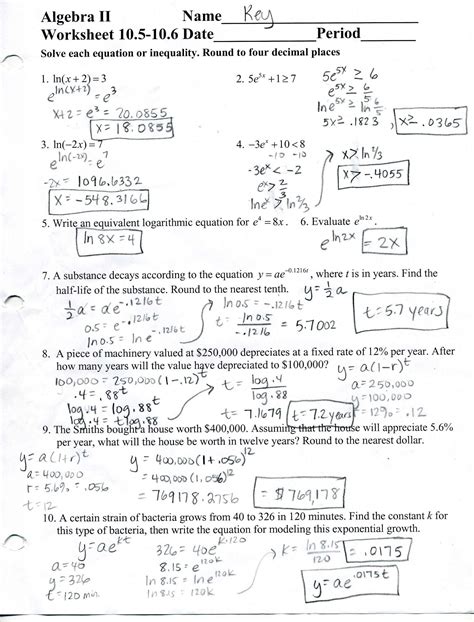 Algebra II Name Key
Worksheet 10.5-10.6 Date Period
Solve each equation or inequality. Round to four decimal places
1. ln(x + 2) = 3
e^ln(x+2) = e^3
x+2 = e^3 = 20.0855
x = 18.0855
2. 5e^5x + 1 ≥ 7
5e^5x ≥ 6
e^5x ≥ 6/5
ln e^5x ≥ ln 6/5
5x ≥ .1823
x ≥ .0365
3. ln(-2x) = 7
e^ln(-2x) = e^7
-2x = 1096.6332
x = -548.3166
4. -3e^x + 10 < 8
-10 -10
-3e^x < -2
e^x > 2/3
ln e^x > ln 2/3
x > ln 2/3
x > -.4055
5. Write an equivalent logarithmic equation for e^4 = 8x. 6. Evaluate e^ln 2x.
ln 8x = 4
e^ln2x = 2x
7. A substance decays according to the equation y = ae^-0.1216t, where t is in years. Find the
half-life of the substance. Round to the nearest tenth.
y = 1/2 a
1/2 a = ae^-.1216t
0.5 = e^-.1216t
ln 0.5 = ln e^-.1216t
ln 0.5 = -.1216t
t = ln 0.5/-.1216 = 5.7002
t = 5.7 years
8. A piece of machinery valued at $250,000 depreciates at a fixed rate of 12% per year. After
how many years will the value have depreciated to $100,000?
y = a(1-r)^t
a = 250,000
y = 100,000
r = 12% = .12
100,000 = 250,000(1-.12)^t
.4 = .88^t
log .4 = log .88^t
log .4 = t log .88
t = log .4/log .88
t = 7.1679
t = 7.2 years
9. The Smiths bought a house worth $400,000. Assuming that the house will appreciate 5.6%
per year, what will the house be worth in twelve years? Round to the nearest dollar.
y = a(1+r)^t
a = 400,000
r = 5.6% = .056
t = 12
y = 400,000(1+.056)^12
= 400,000(1.056)^12
= 769178.2756 = $769,178
10. A certain strain of bacteria grows from 40 to 326 in 120 minutes. Find the constant k for
this type of bacteria, then write the equation for modeling this exponential growth.
y = ae^kt
a = 40
y = 326
t = 120 min.
326 = 40e^k·120
8.15 = e^120k
ln 8.15 = ln e^120k
ln 8.15 = 120k
k = ln 8.15/120 = .0175
y = ae^.0175t